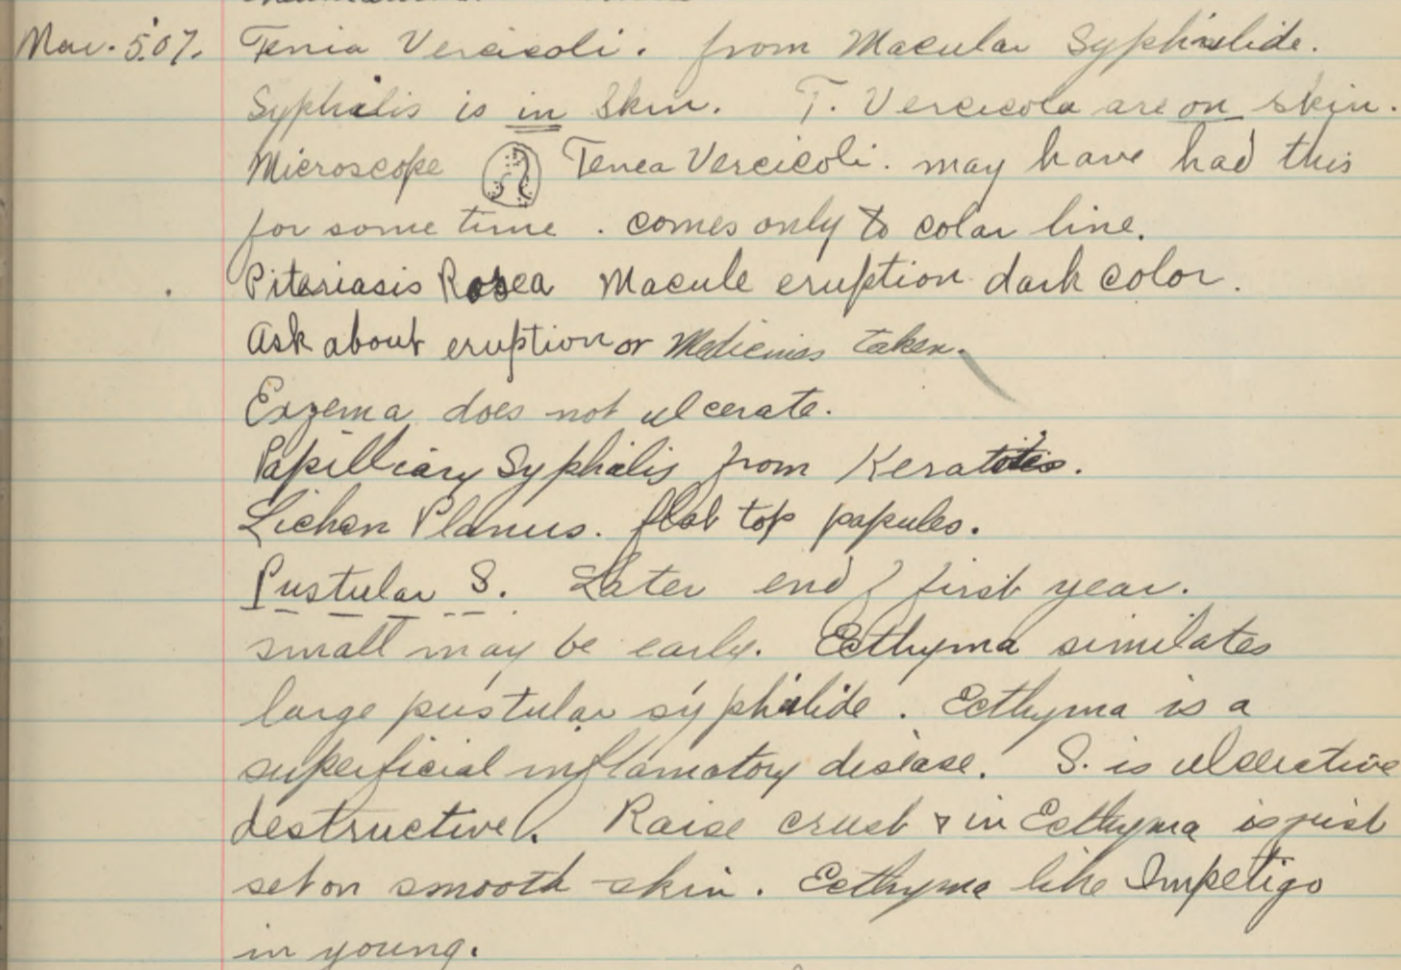 Mar. 5. 07. Tenia Vercicoli. from Macular Syphilide.
Syphilis is in Skin. T. Vercicola are on skin.
Microscope Tenea Vercicoli. may have had this
for some time. comes only to colar line.
Piteriasis Rosea Macule eruption dark color.
Ask about eruption or Medicines taken.
Exzema does not ulcerate.
Papilliary Syphilis from
Lichen Planus. flat top papules.
Pustular S. Later end of first year.
small may be early. Ecthyma similates
large pustular syphilide. Ecthyma is a
superficial inflamatory disease. S. is ulcerative
destructive. Raise crust & in Ecthyma is just
set on smooth skin. Ecthyma like Impetigo
in young.